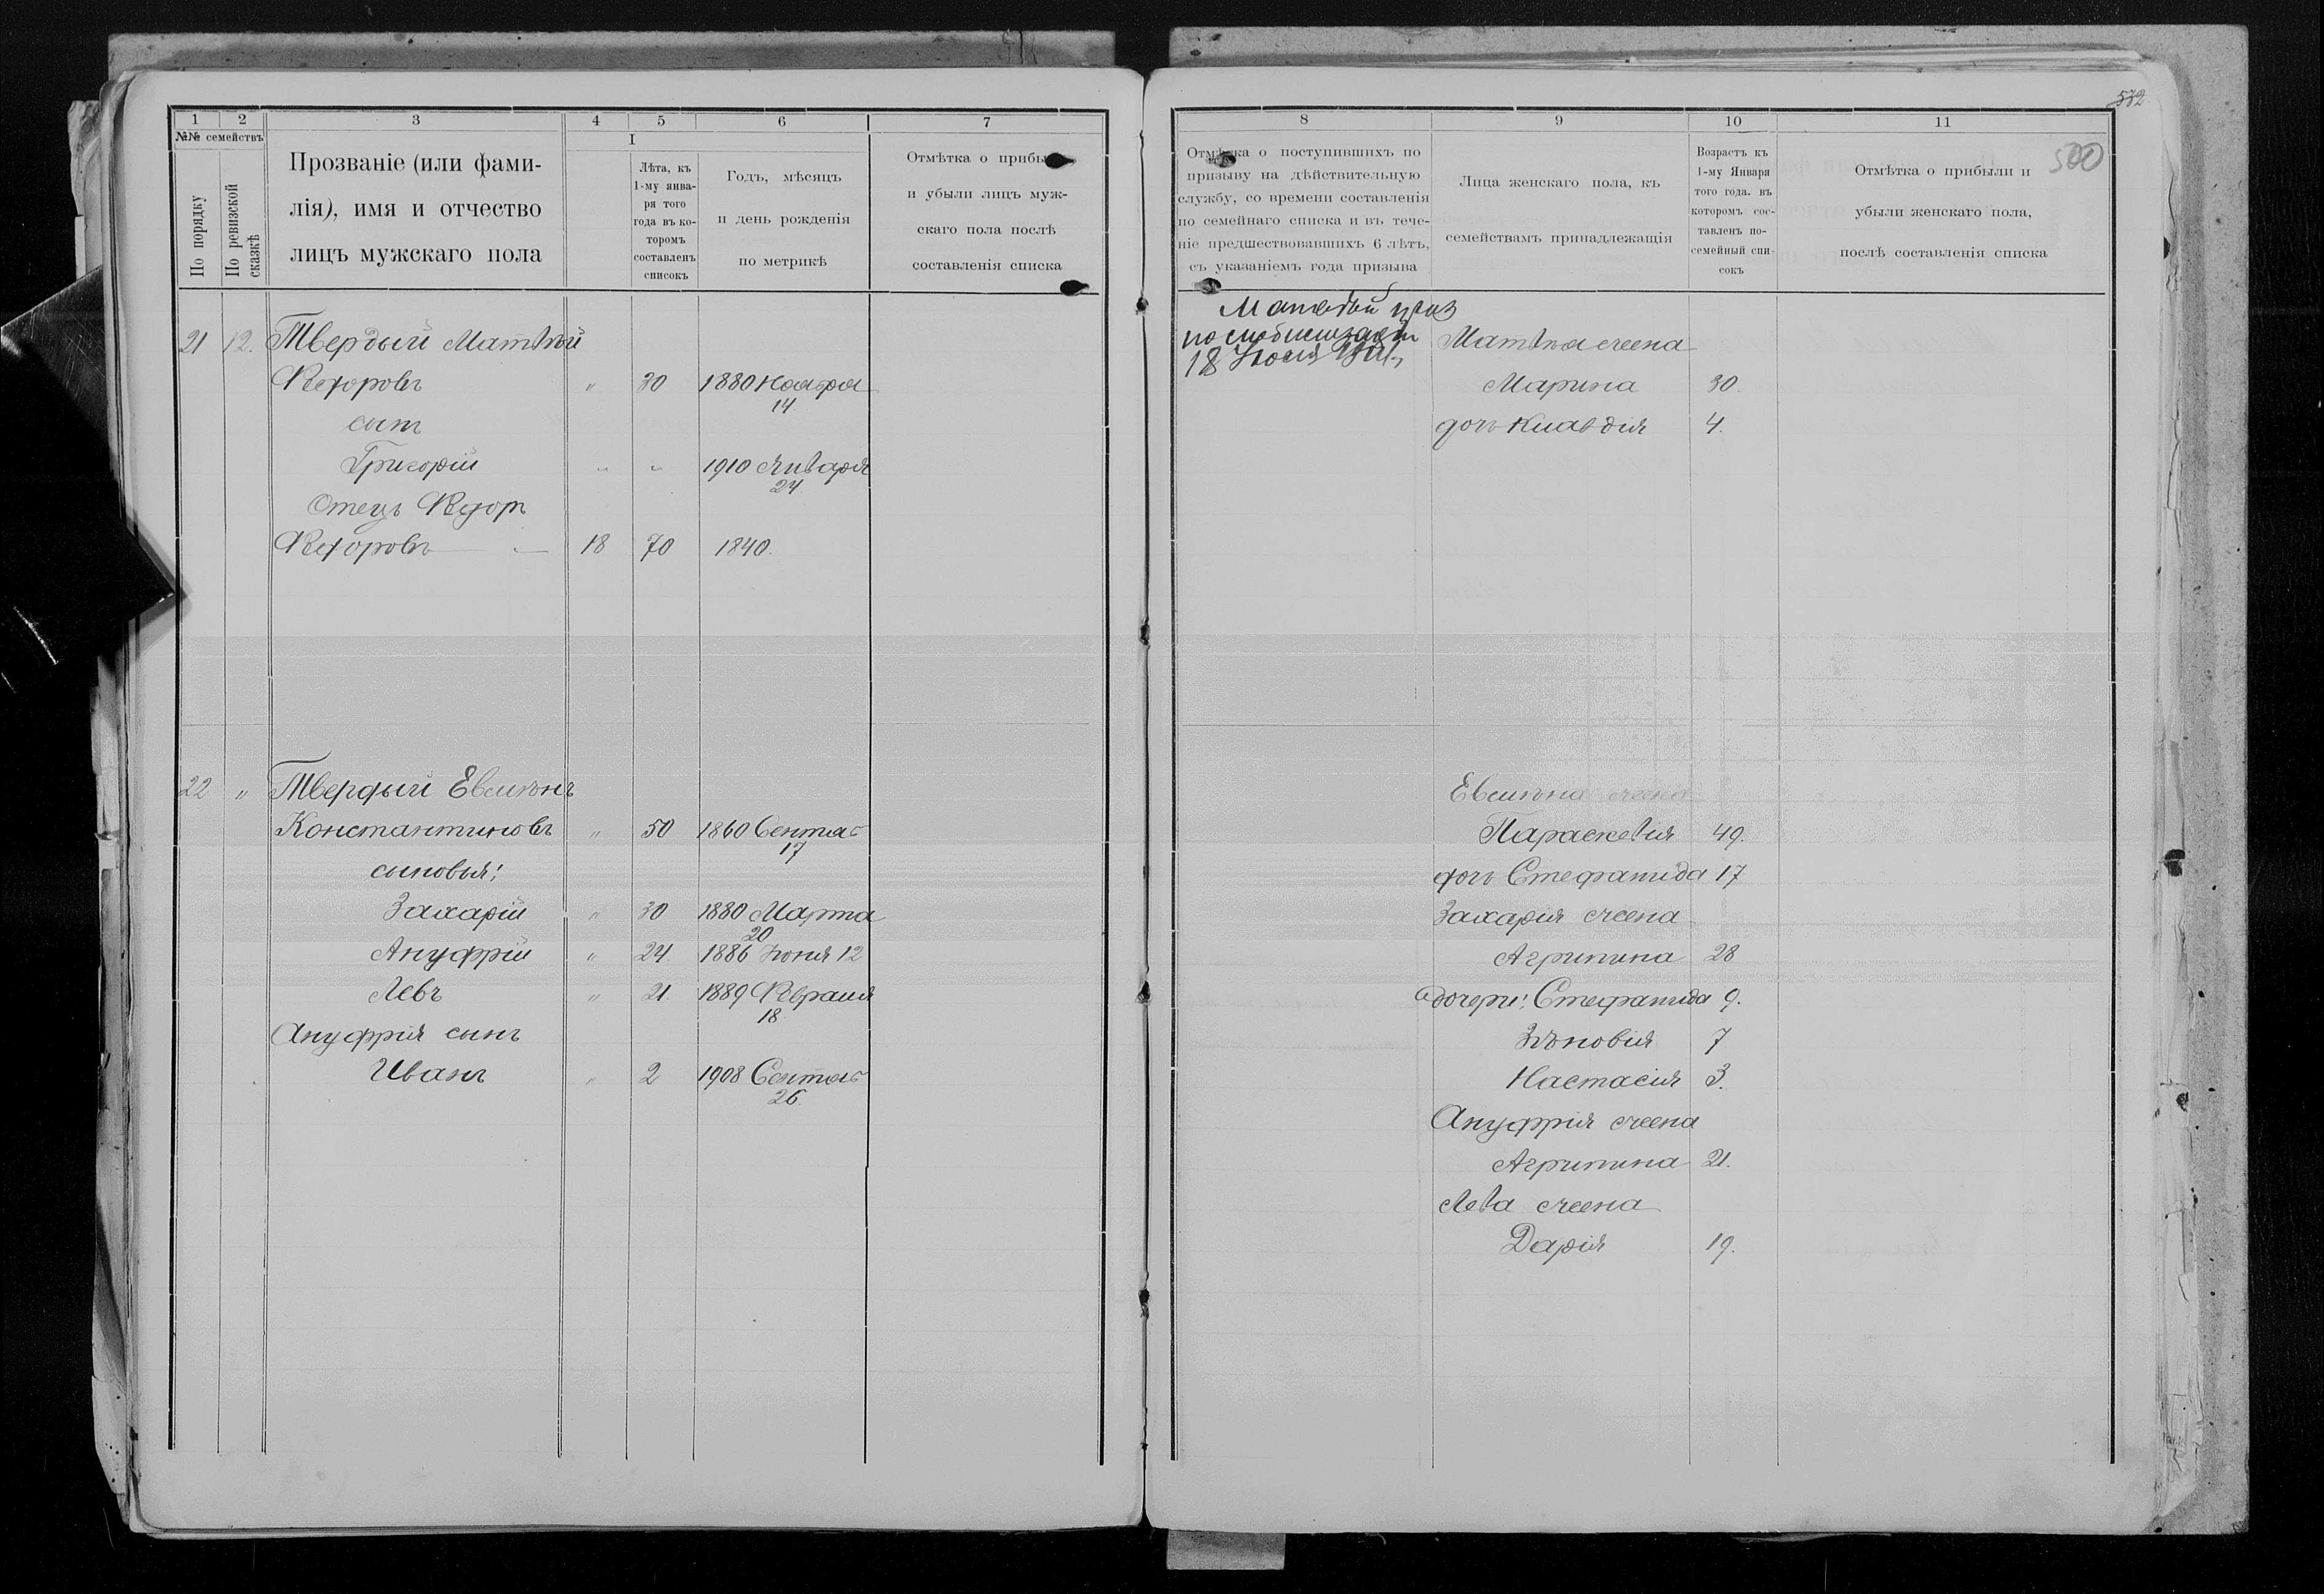 1 2 3 4 5 6 7
№№ семействъ
По порядку
По ревизской сказкѣ
Прозваніе (или фами-
лія), имя и отчество
лицъ мужскаго пола
I
Лѣта, къ
1-му янва-
ря того
года въ ко-
торомъ
составленъ
списокъ
Годъ, мѣсяцъ
и день рожденія
по метрикѣ
Отмѣтка о прибы
и убыли лицъ муж-
скаго пола послѣ
составленія списка
21 12. Твердый Матвѣй
Федоровъ " 30 1880 Ноября
14.
сынъ
Григорій " " 1910 Января
24
Отецъ Федоръ
Федоровъ — 18 70 1840.
22 " Твердый Евсигній
Константиновъ " 50 1860 Сентяб
17
сыновья:
Захарій " 30 1880 Марта
20
Ануфрій " 24 1886 Іюня 12
Левъ " 21 1889 Февраля
18.
Ануфрія сынъ
Иванъ " 2 1908 Сентяб
26.
532
500
8 9 10 11
Отмѣтка о поступившихъ по
призыву на дѣйствительную
службу, со времени составленія
по семейнаго списка и въ тече-
ніе предшествовавшихъ 6 лѣтъ,
съ указаніемъ года призыва
Лица женскаго пола, къ
семействамъ принадлежащія
Возрастъ къ
1-му Января
того года. въ
которомъ сос-
тавленъ по-
семейный спи-
сокъ
Отмѣтка о прибыли и
убыли женскаго пола,
послѣ составленія списка
Матвѣй
по мобилизаціи
18 Іюля
Матвѣя жена
Марина 30.
дочь Клавдія 4.
Евсигнія жена
Параскевія 49.
дочь Стефанида 17
Захарія жена
Агрипина 28
дочери: Стефанида 9.
Зѣновія 7
Настасія 3.
Ануфрія жена
Агрипина 21.
Лева жена
Дарія 19.